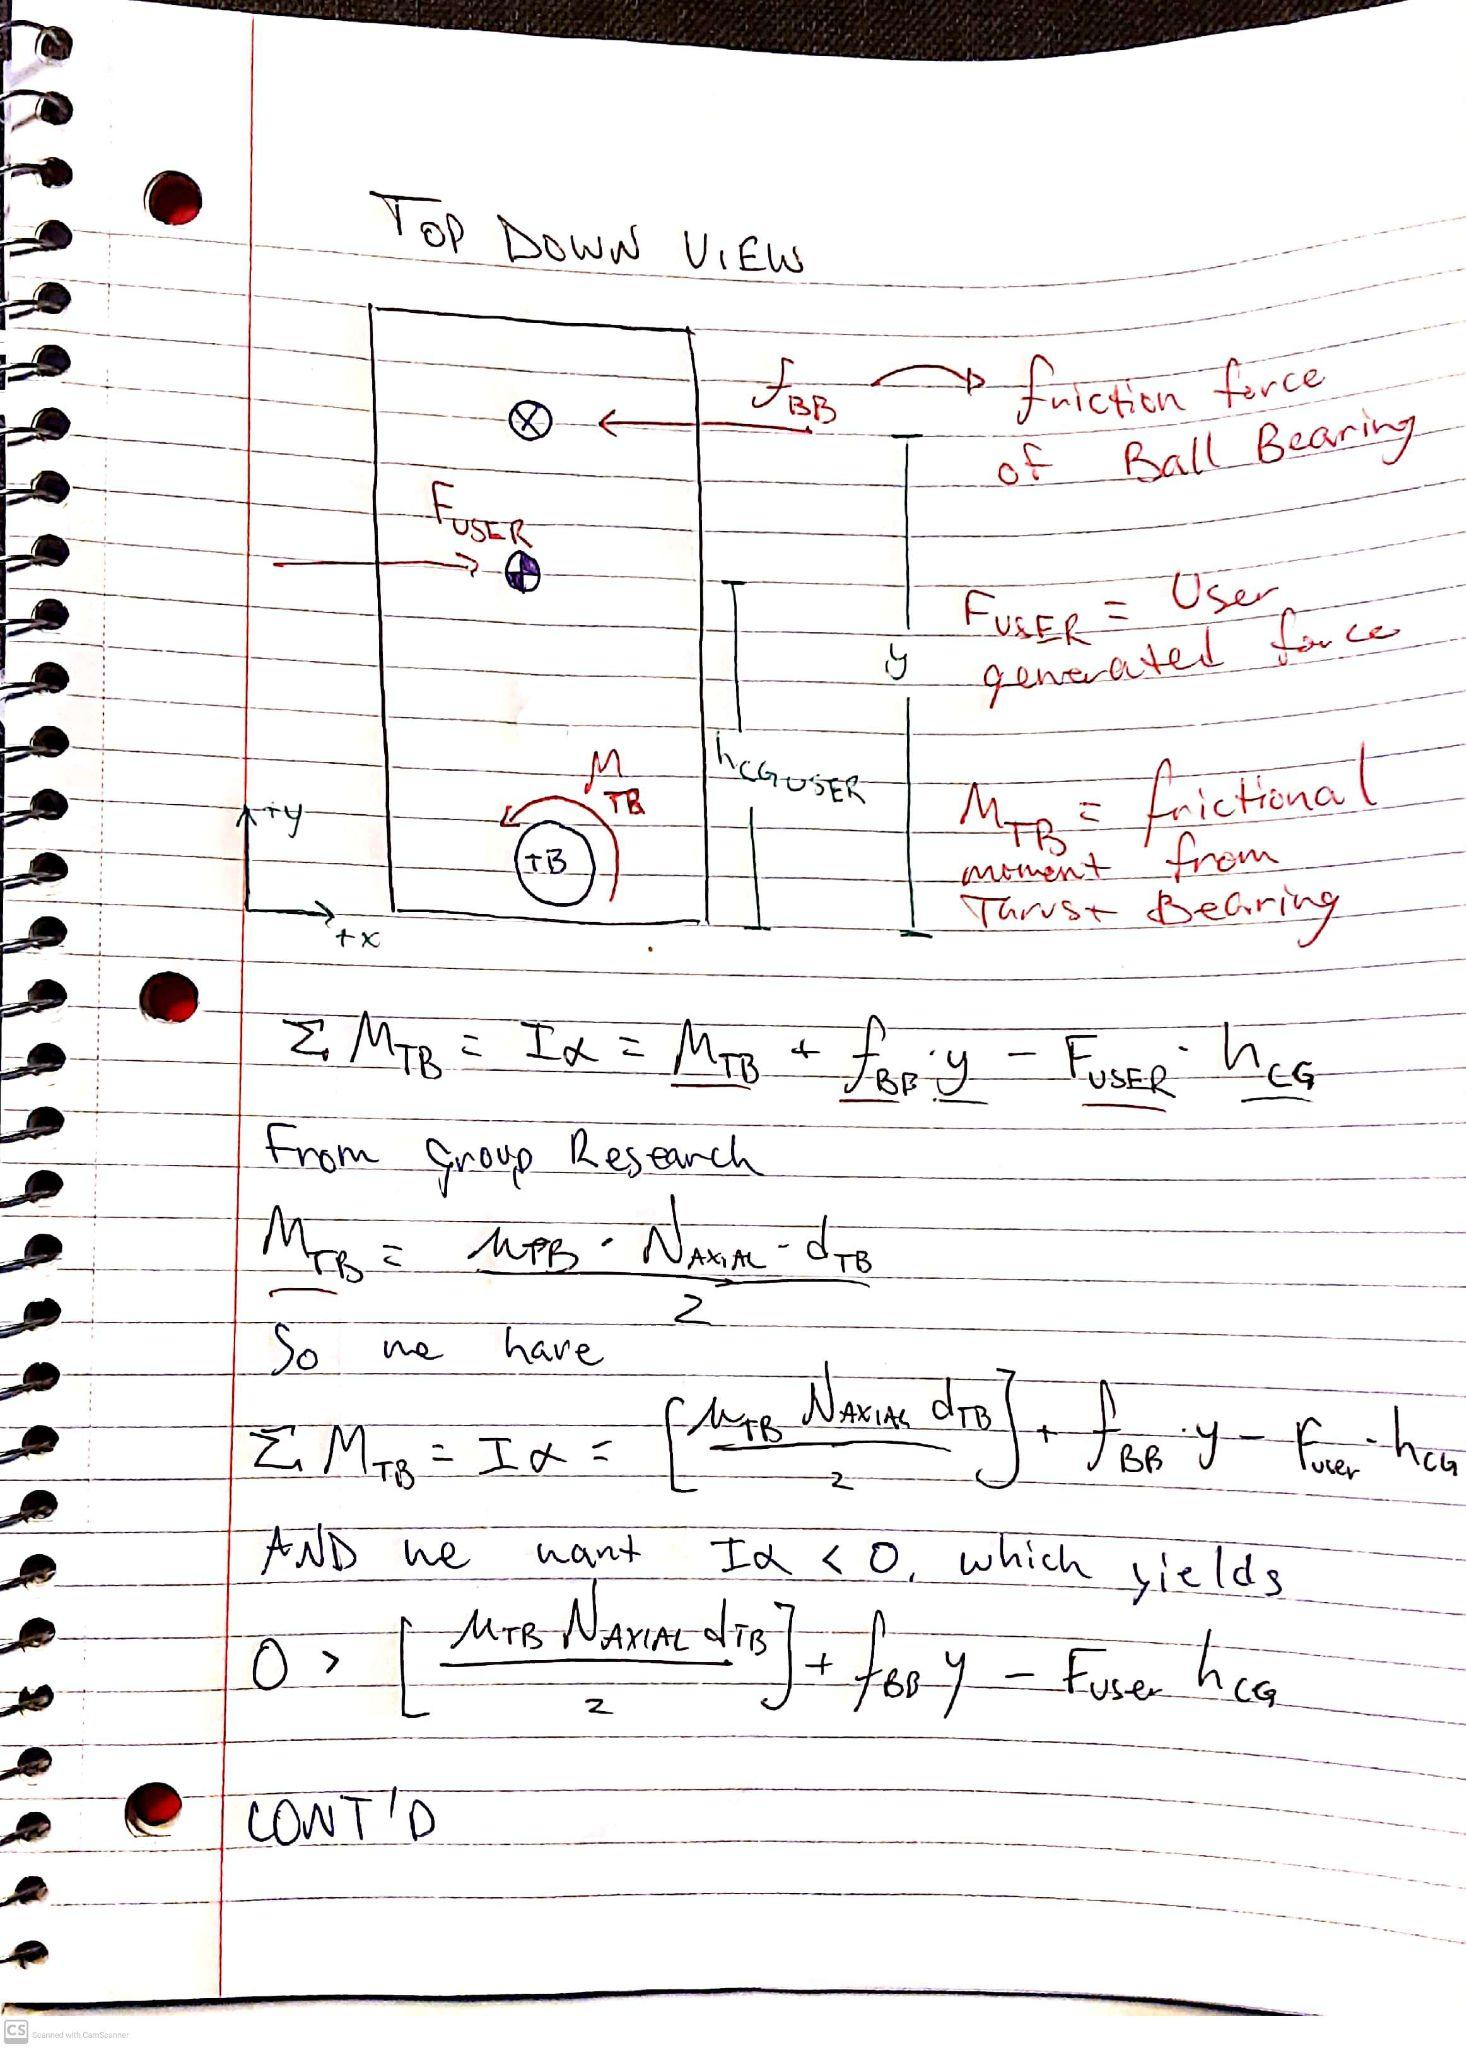 TOP DOWN VIEW
fBB
friction force
of Ball Bearing
FUSER
FUSER = User
generated force
y
hCGUSER
M
TB
TB
MTB = frictional
moment from
Thrust Bearing
+y
+x
Σ MTB = Iα = MTB + fBB · y - FUSER · hCG
From Group Research
MTB = μTB · NAXIAL · dTB
2
So we have
Σ MTB = Iα = [μTB NAXIAL dTB / 2] + fBB · y - Fuser · hCG
AND we want Iα < 0, which yields
0 > [μTB NAXIAL dTB / 2] + fBB y - Fuser hCG
CONT'D
CS Scanned with CamScanner